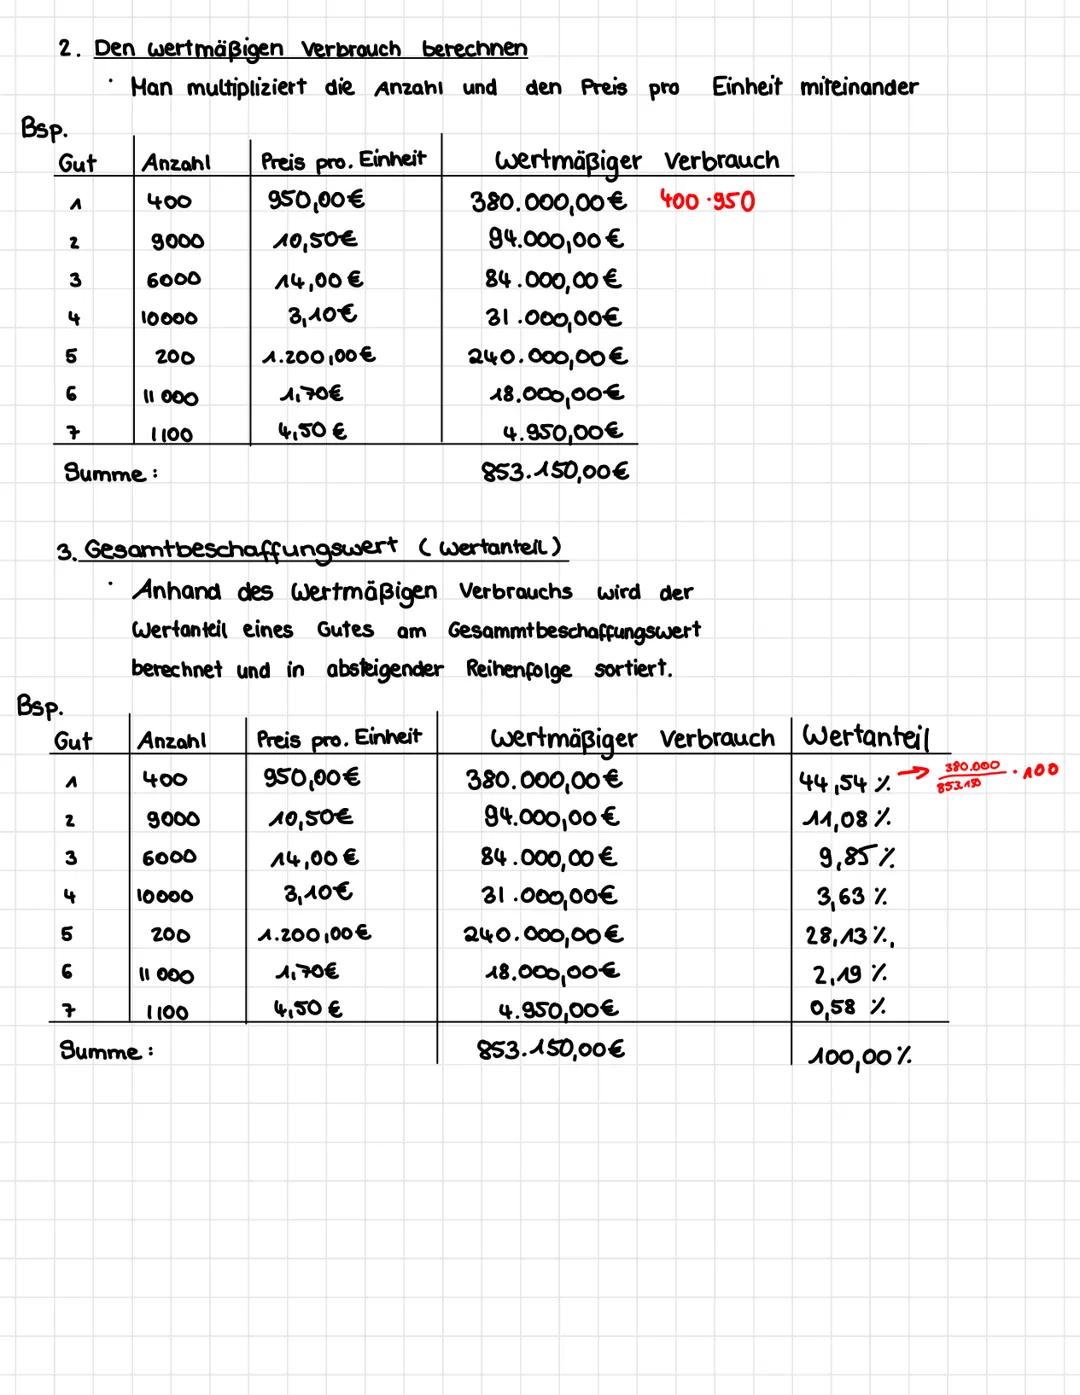 2. Den wertmäßigen Verbrauch berechnen
· Man multipliziert die Anzahl und den Preis pro Einheit miteinander
Bsp.
Gut Anzahl Preis pro. Einheit wertmäßiger Verbrauch
1 400 950,00€ 380.000,00€ 400·950
2 9000 10,50€ 94.000,00€
3 6000 14,00€ 84.000,00€
4 10000 3,10€ 31.000,00€
5 200 1.200,00€ 240.000,00€
6 11 000 1,70€ 18.000,00€
7 1100 4,50€ 4.950,00€
Summe: 853.150,00€
3. Gesamtbeschaffungswert (Wertanteil)
· Anhand des Wertmäßigen Verbrauchs wird der
Wertanteil eines Gutes am Gesammtbeschaffungswert
berechnet und in absteigender Reihenfolge sortiert.
Bsp.
Gut Anzahl Preis pro. Einheit wertmäßiger Verbrauch Wertanteil
1 400 950,00€ 380.000,00€ 44,54% → 380.000/853.150 · 100
2 9000 10,50€ 94.000,00€ 11,08%
3 6000 14,00€ 84.000,00€ 9,85%
4 10000 3,10€ 31.000,00€ 3,63%
5 200 1.200,00€ 240.000,00€ 28,13%,
6 11 000 1,70€ 18.000,00€ 2,19%
7 1100 4,50€ 4.950,00€ 0,58%
Summe: 853.150,00€ 100,00%